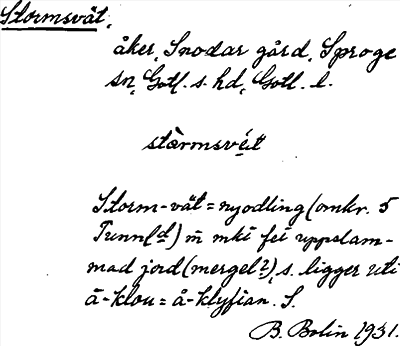 Stormsvät,
åker, Snodar gård, Sproge
sn, Gotl. s. hd, Gotl. l.
stårmsvét
Storm-vät = nyodling (omkr. 5
Tunn(d) m̄ mki fei uppslam-
mad jord (mergel?), s. ligger uti
å-klou = å-klyfian. S.
B. Bolin 1931.